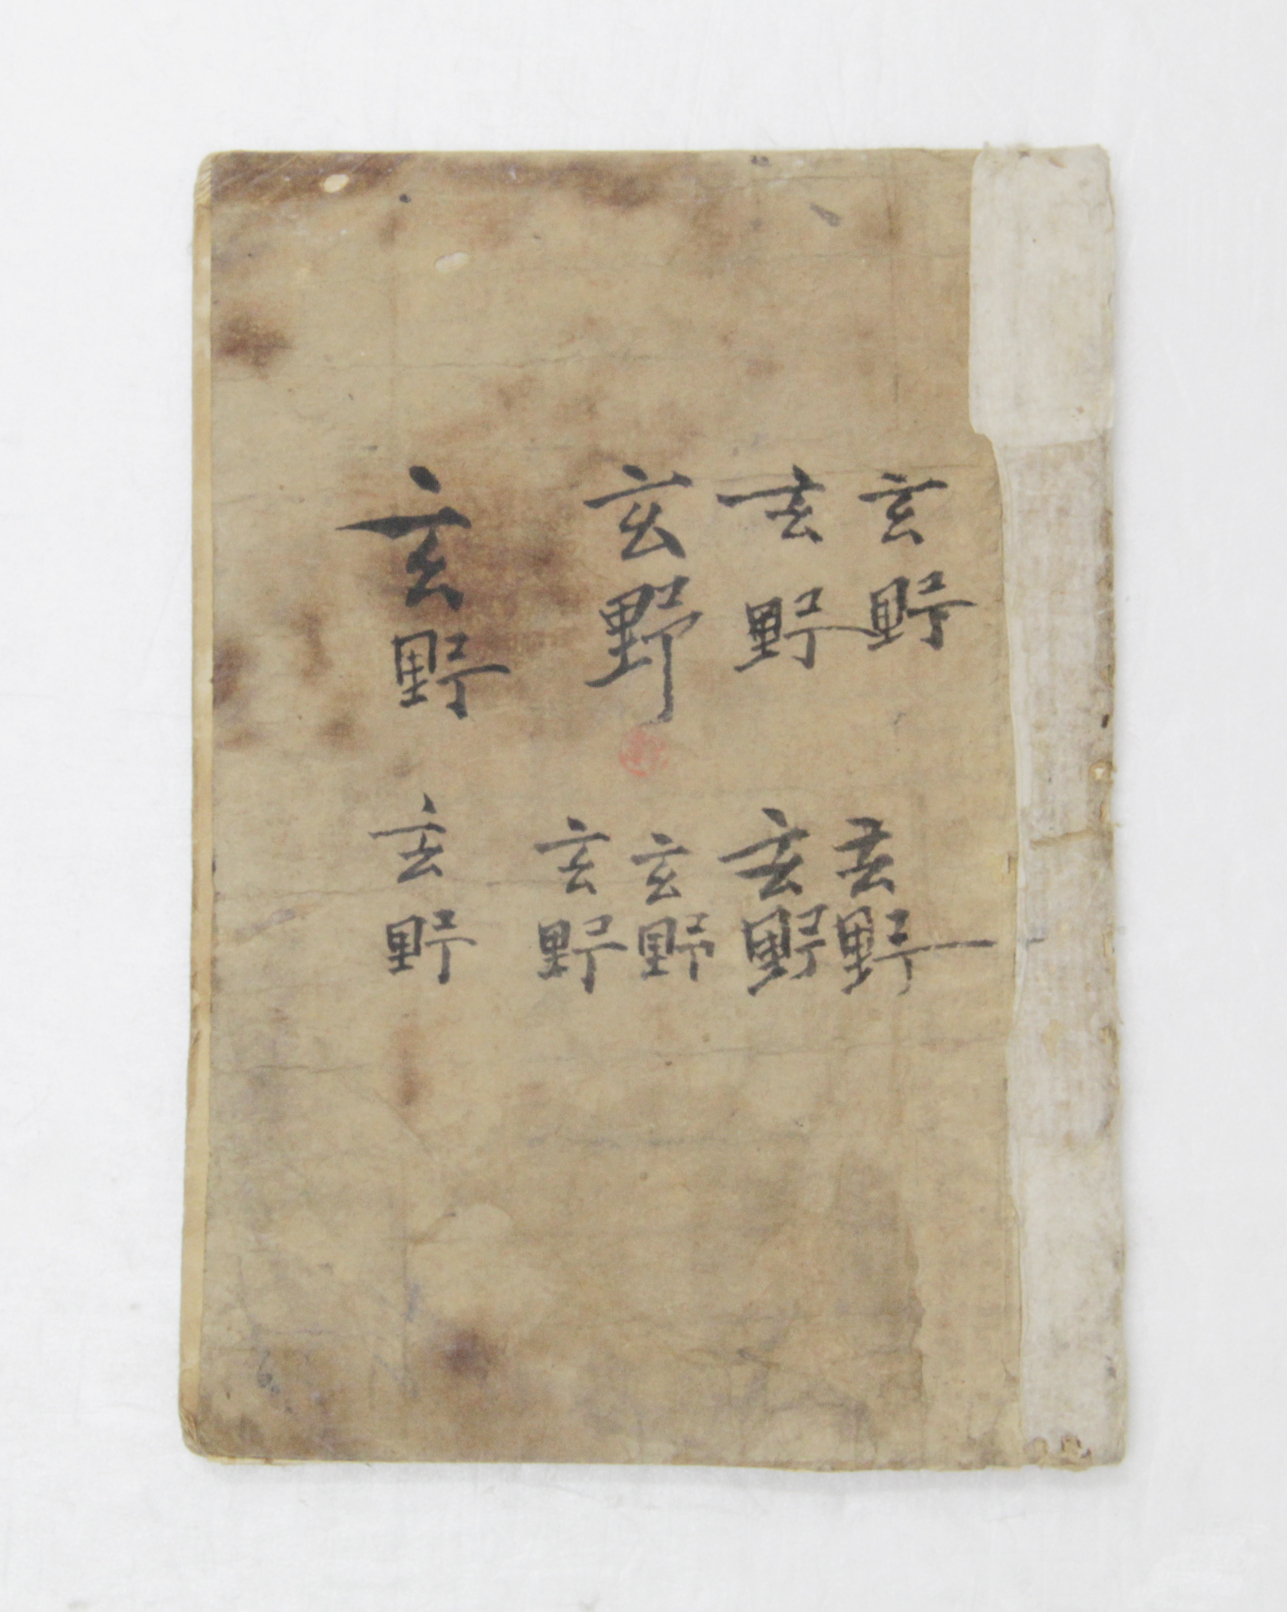 玄野
玄野
玄野
玄野
玄野
玄野
玄野
玄野
玄野